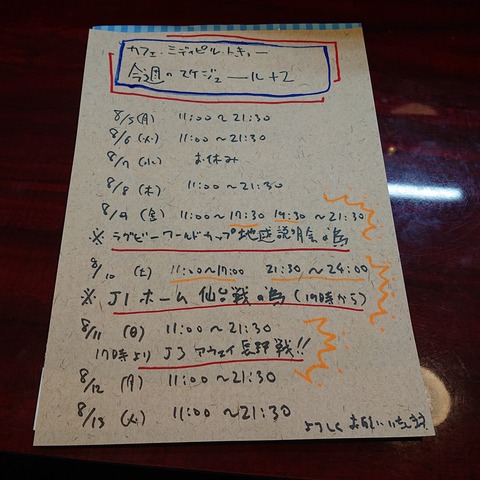 カフェ・ミディピル・トキュー
今週のスケジュール+2
8/5(月) 11:00〜21:30
8/6(火) 11:00〜21:30
8/7(水) お休み
8/8(木) 11:00〜21:30
8/9(金) 11:00〜17:30 19:30〜21:30
※ラグビーワールドカップ地域説明会の為
8/10(土) 11:00〜17:00 21:30〜24:00
※J1ホーム仙台戦の為(19時から)
8/11(日) 11:00〜21:30
17時よりJ3アウェイ長野戦!!
8/12(月) 11:00〜21:30
8/13(火) 11:00〜21:30
よろしくお願いいたします